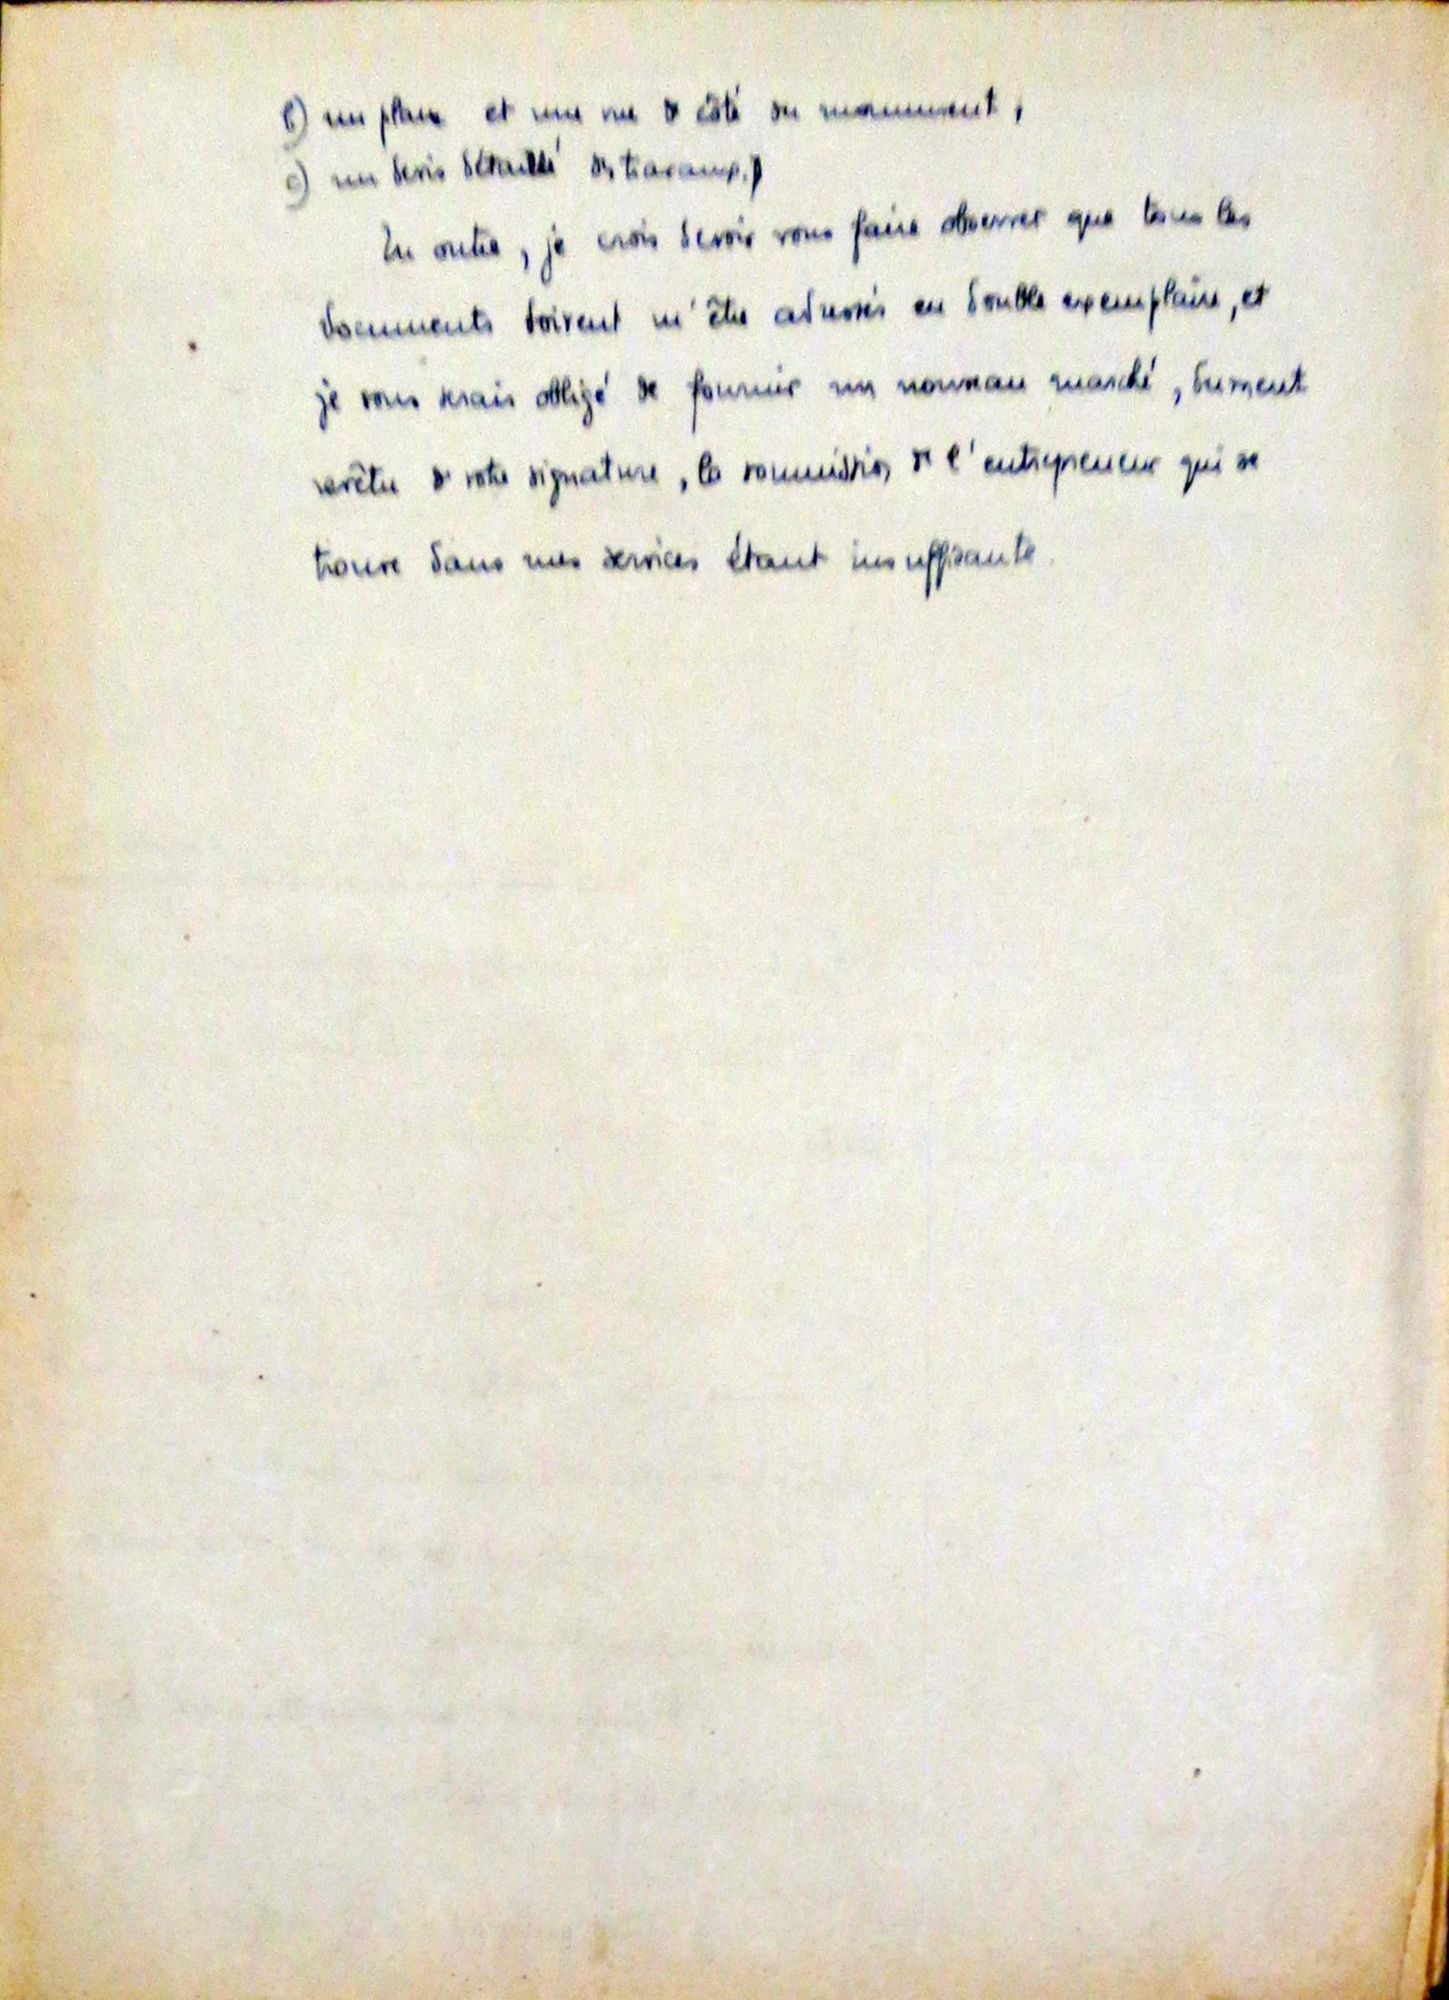 b) un plan et une vue de côté du monument,
c) un devis détaillé des travaux.)
En outre, je crois devoir vous faire observer que tous les
documents doivent m'être adressés en double exemplaire, et
je vous serais obligé de fournir un nouveau marché, dument
revêtu de votre signature, la soumission de l'entrepreneur qui se
trouve dans mes services étant insuffisante.